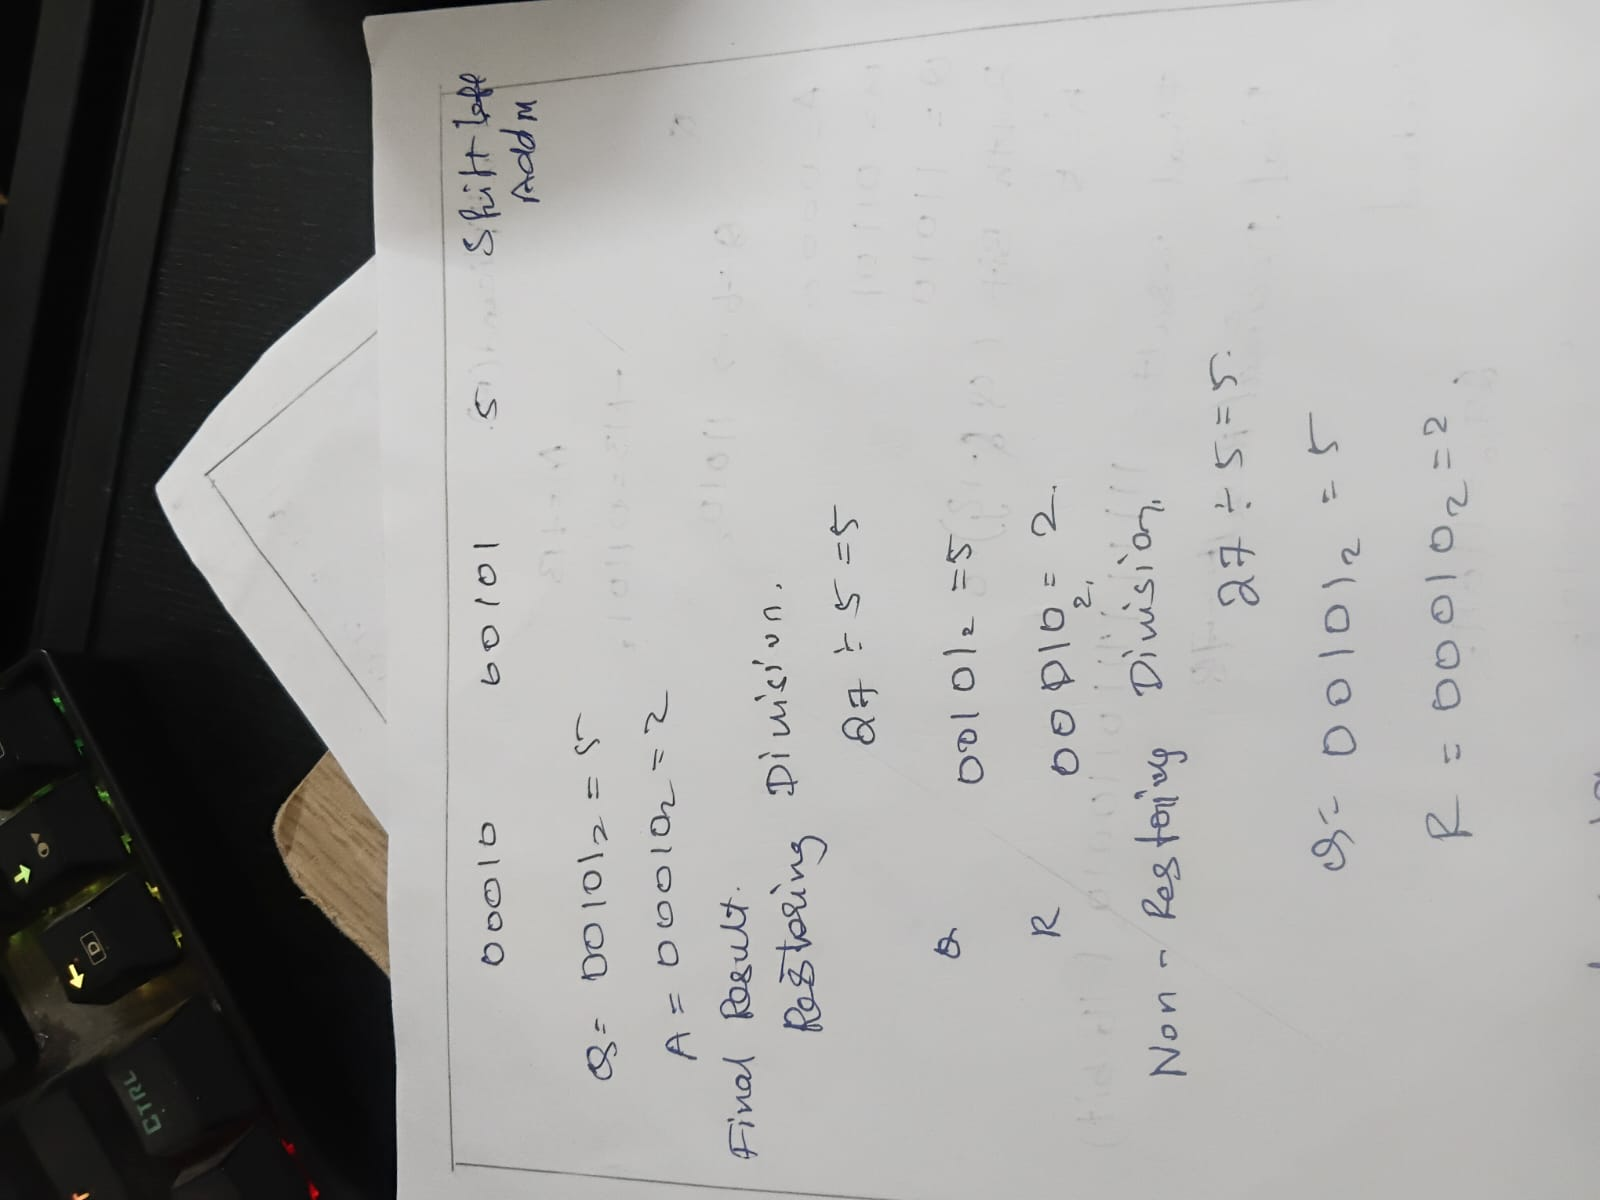 00010 00101 5 Shift left
Add M
Q = 00101₂ = 5
A = 00010₂ = 2
Final Result.
Restoring Division.
27 ÷ 5 = 5
Q 00101₂ = 5
R 00010₂ = 2.
Non - Restoring Division.
27 ÷ 5 = 5.
Q = 00101₂ = 5
R = 00010₂ = 2.
CTRL